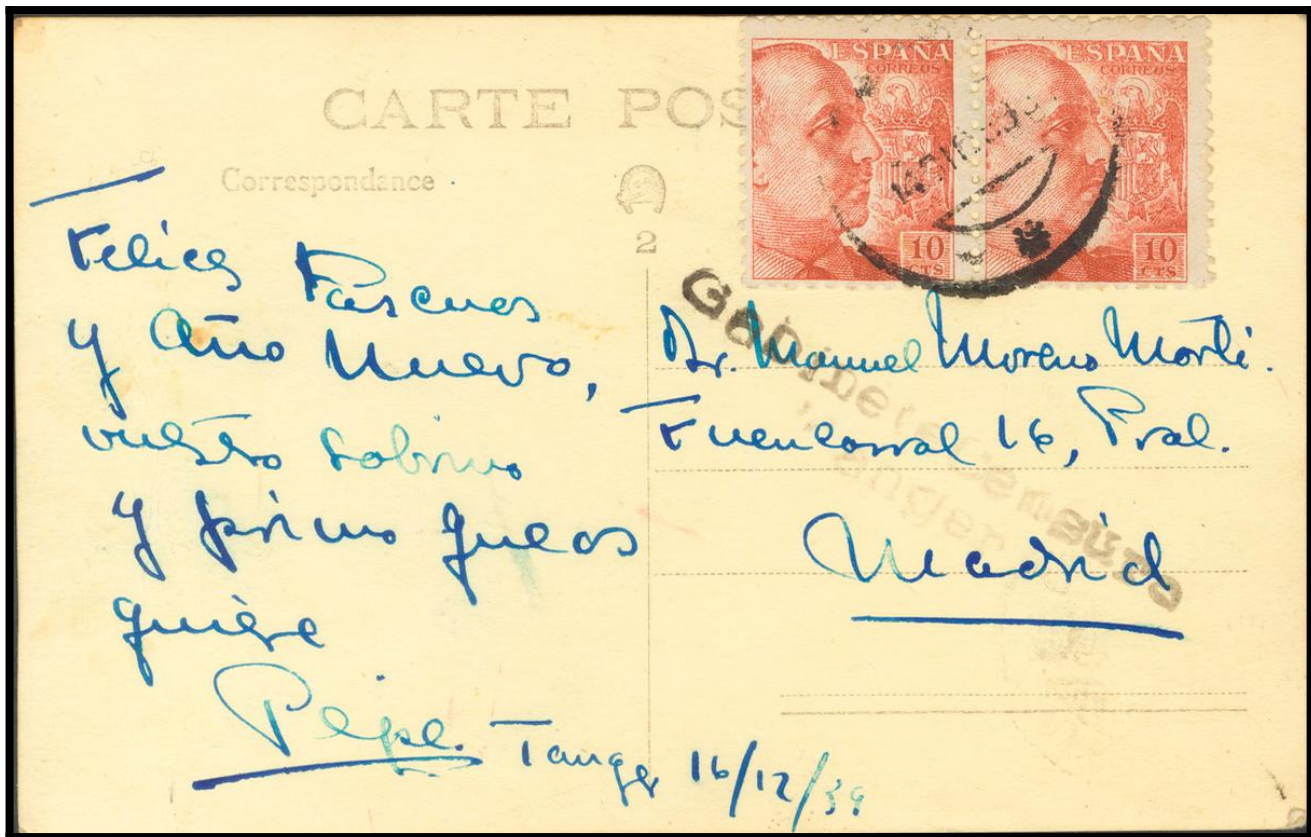 CARTE POS
Correspondance
2
ESPAÑA
CORREOS
10
CTS
ESPAÑA
CORREOS
10
CTS
Gabinete Censura
Tanger
Felices Pascuas
y Año Nuevo,
vuestro sobrino
y primo que os
quiere
Pepe. Tanger 16/12/39
Dr. Manuel Moreno Martí.
Fuencarral 16, Pral.
Madrid